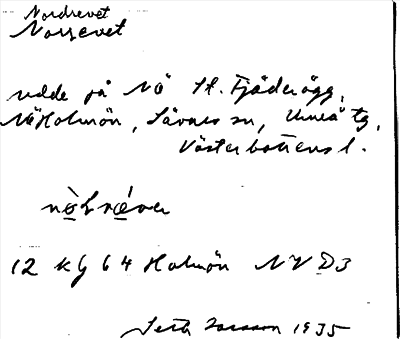 Nordrevet
Norrevet
udde på NÖ St. Fjäderägg,
Holmön, Sävars sn, Umeå tg,
Västerbottens l.
12 KG 64 Holmön NV D3
1935